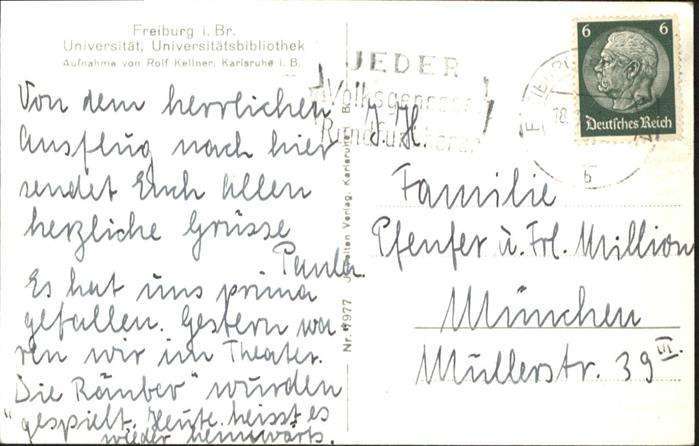 Freiburg i. Br.
Universität, Universitätsbibliothek
Aufnahme von Rolf Kellner, Karlsruhe i. B.
Von dem herrlichen
Ausflug nach hier
sendet Euch Allen
herzliche Grüsse
Paula
Es hat uns prima
gefallen. Gestern wa-
ren wir im Theater.
"Die Räuber" wurden
gespielt. Heute heisst es
wieder heimwärts.
Nr. 7977 Verlag, Karlsruhe i. B.
JEDER
Volksgenosse
Rundfunkhörer
6 6
Deutsches Reich
18.
b
Familie
Pfenfer u. Frl. Million
München
Müllerstr. 39 III.